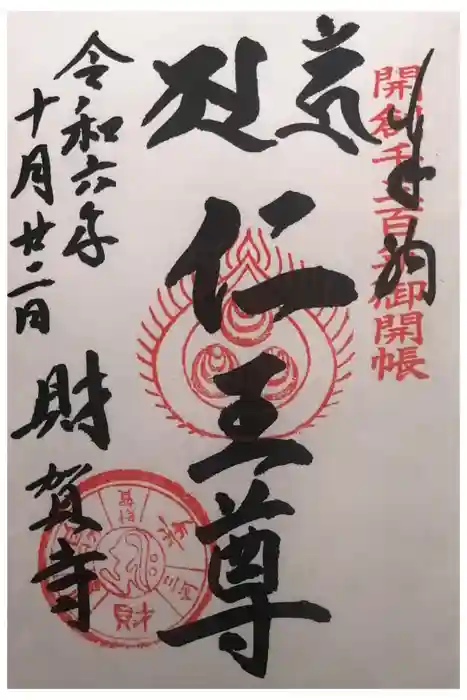 奉拝
開創千三百年御開帳
仁王尊
令和六年
十月廿二日
財賀寺
財